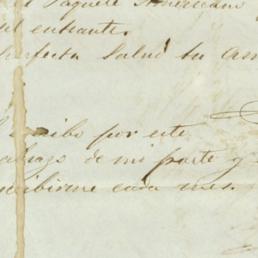 el Paquete Americano
del entrante.
perfecta Salud tu am
escribo por este
abrazo de mi parte y
escribirme cada mes.